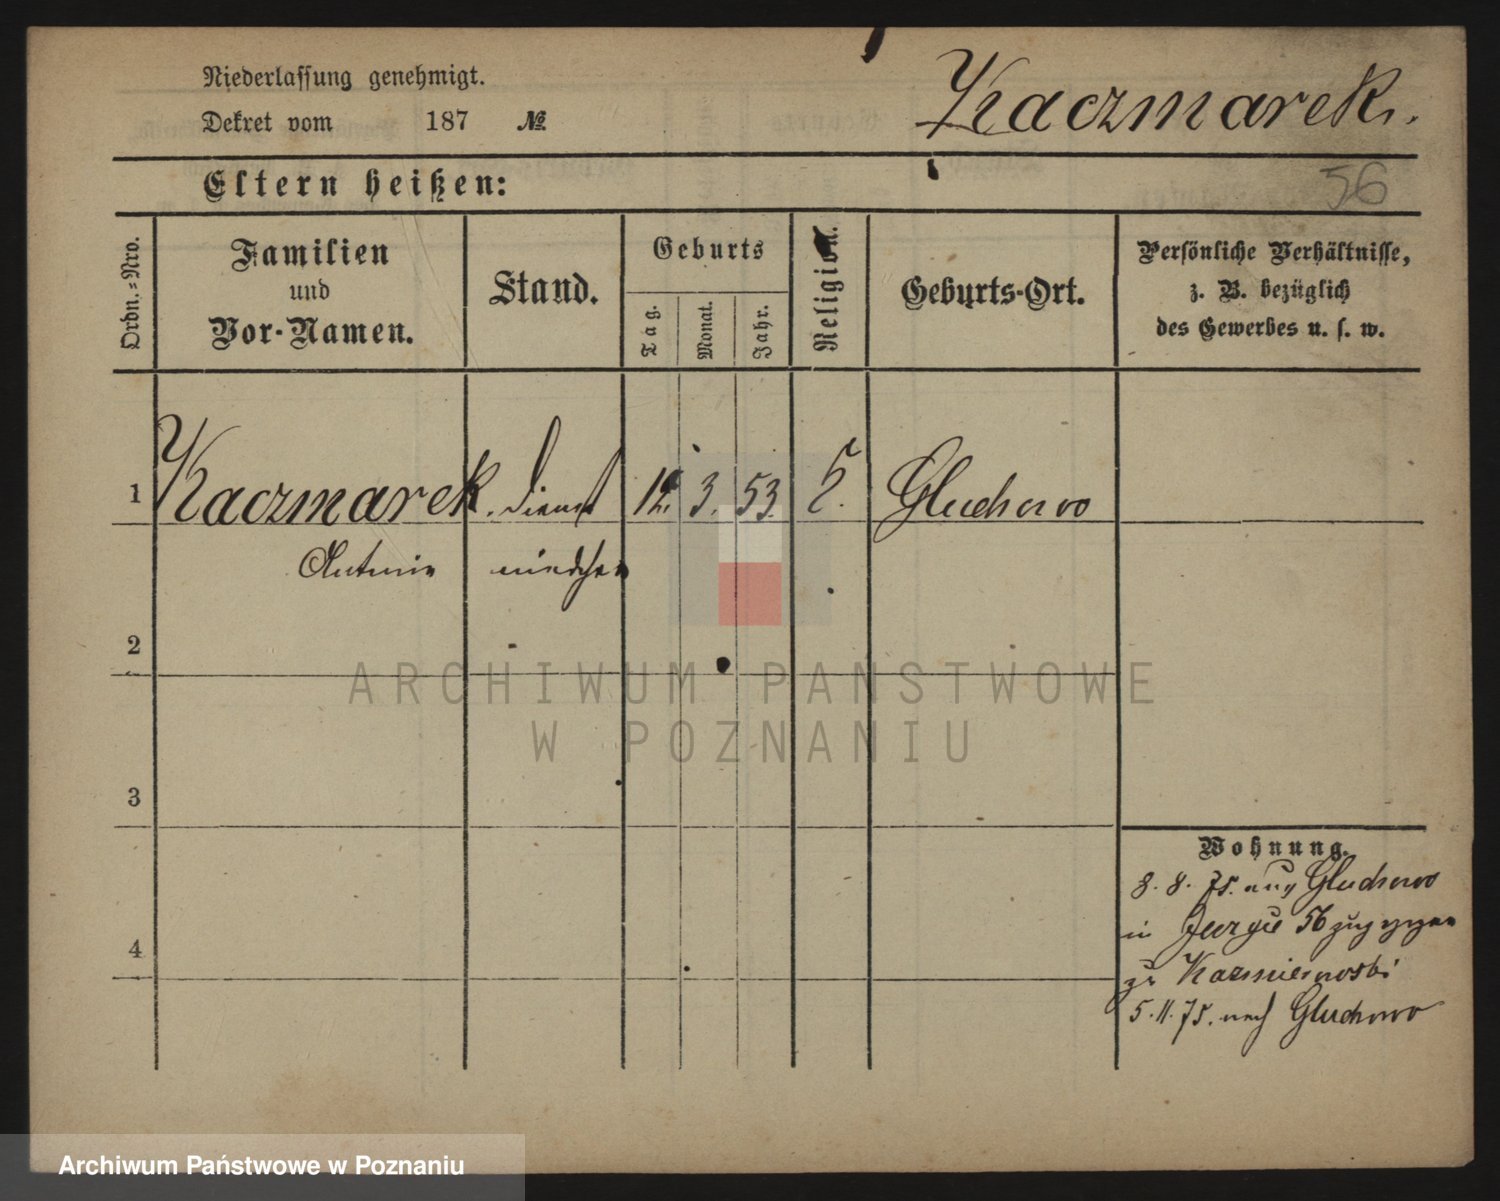 Niederlassung genehmigt.
Dekret vom 187 №
Kaczmarek.
Eltern heißen:
56
Ordn.-Nro.
Familien
und
Vor-Namen.
Stand.
Geburts
Tag.
Monat.
Jahr.
Religion.
Geburts-Ort.
Persönliche Verhältnisse,
z. B. bezüglich
des Gewerbes u. s. w.
1 Kaczmarek. Dienst 12. 3. 53. Gluchowo
Antonie mädchen
2
3
4
Wohnung.
8. 8. 75. aus Gluchowo
in 56 zugezogen
zu
5. 11. 75. nach Gluchowo
ARCHIWUM PAŃSTWOWE
W POZNANIU
Archiwum Państwowe w Poznaniu